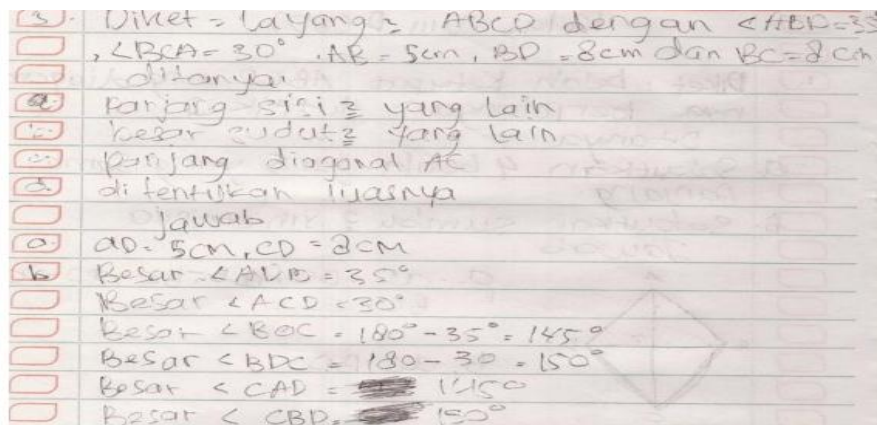 3. Diket = Layang2 ABCD dengan <ABD=35
, <BCA= 30° . AB = 5cm, BD = 8cm dan BC=8cm
ditanya:
a. Panjang sisi2 yang lain
b. besar sudut2 yang lain
c. panjang diagonal AC
d. ditentukan luasnya
jawab
a. aD= 5cm, CD = 8cm
b Besar <ADB = 35°
Besar <ACD =30°
Besar <BOC = 180° - 35° = 145°
Besar <BDC = 180 - 30 = 150°
Besar < CAD =
Besar < CBD = 150°